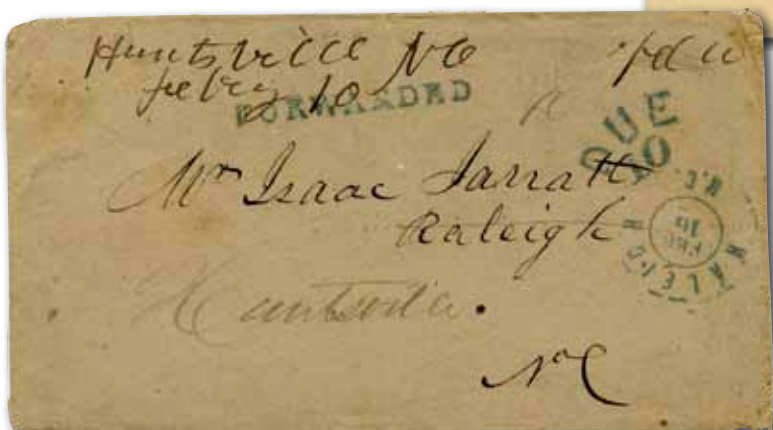 Huntsville NC Pd 10
Febry 10
FORWARDED
DUE
10
Mr Isaac Jarratt
Raleigh
RALEIGH N.C.
FEB
16
Huntsville.
NC